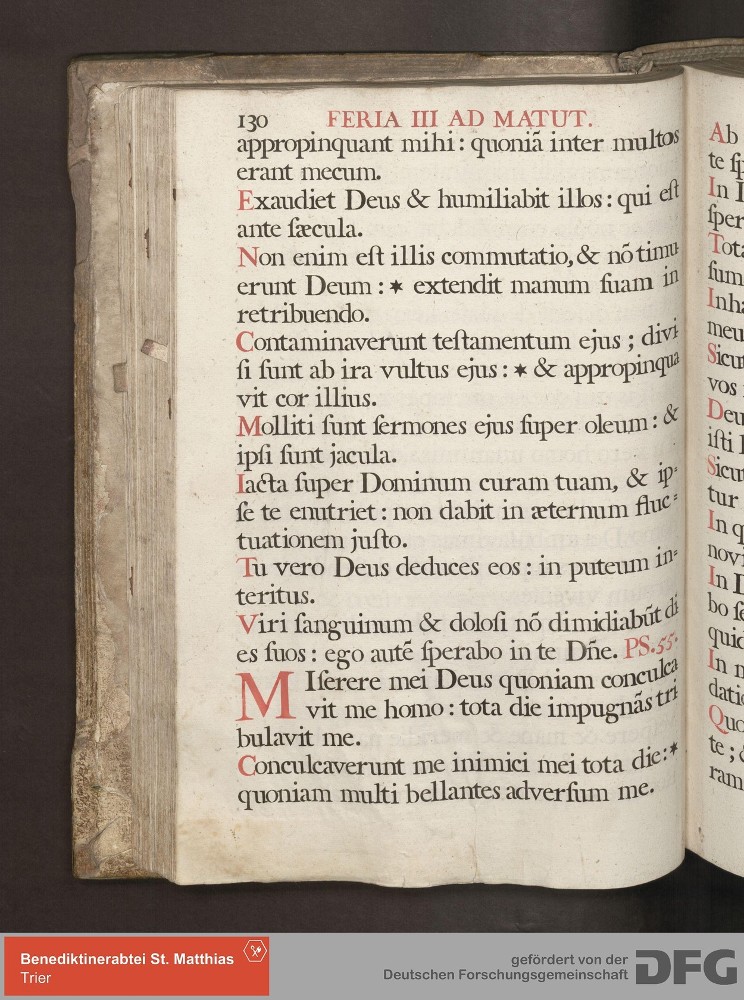 130 FERIA III AD MATUT.
appropinquant mihi : quoniã inter multos
erant mecum.
Exaudiet Deus & humiliabit illos : qui eſt
ante ſæcula.
Non enim eſt illis commutatio, & nõ timu
erunt Deum : ✶ extendit manum ſuam in
retribuendo.
Contaminaverunt teſtamentum ejus ; divi
ſi ſunt ab ira vultus ejus : ✶ & appropinqua
vit cor illius.
Molliti ſunt ſermones ejus ſuper oleum : &
ipſi ſunt jacula.
Iacta ſuper Dominum curam tuam, & ip=
ſe te enutriet : non dabit in æternum fluc=
tuationem juſto.
Tu vero Deus deduces eos : in puteum in=
teritus.
Viri ſanguinum & doloſi nõ dimidiabũt di
es ſuos : ego autẽ ſperabo in te Dñe. PS. 55.
MIſerere mei Deus quoniam conculca
vit me homo : tota die impugnãs tri
bulavit me.
Conculcaverunt me inimici mei tota die : ✶
quoniam multi bellantes adverſum me.
Ab
te ſp
In
ſper
Tota
ſum
Inha
meu
Sicut
vos
Deu
iſti
Sicut
tur
In q
novi
In D
bo ſe
quic
In
datio
Quo
te ;
ram
Benediktinerabtei St. Matthias
Trier
gefördert von der
Deutschen Forschungsgemeinschaft
DFG